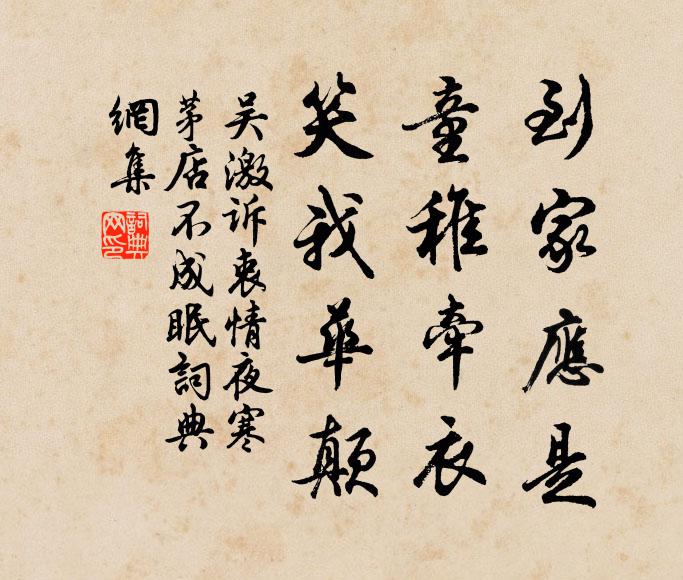 到家應是
童稚牽衣
笑我華顛
吴激訴衷情夜寒
茅店不成眠詞典
網集
詞典
网印